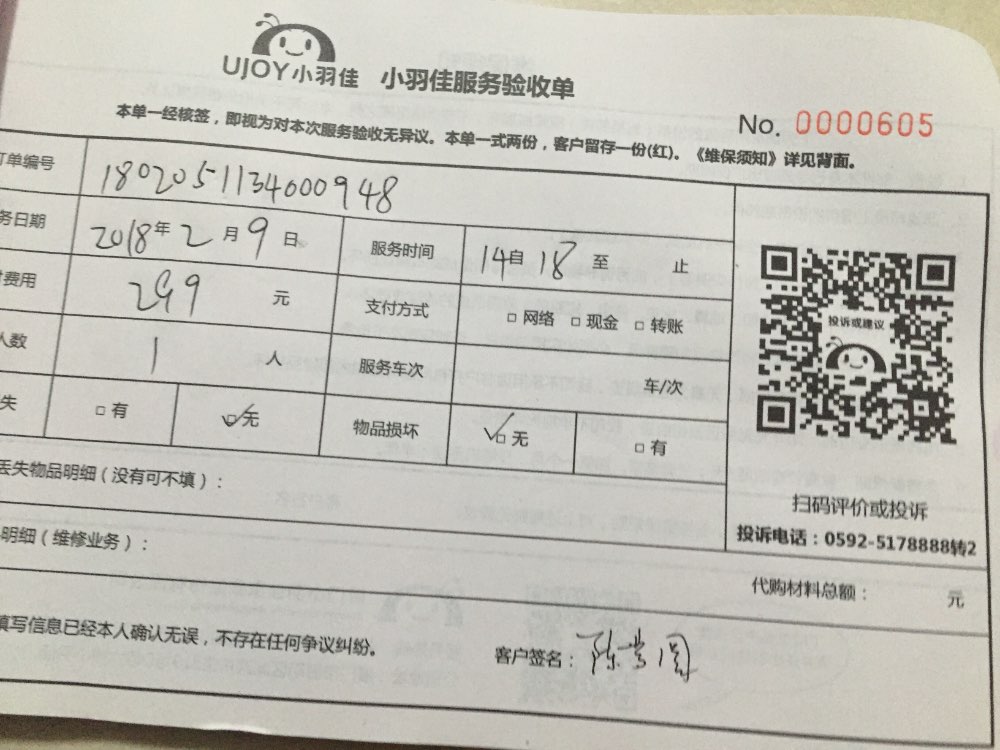 UJOY小羽佳 小羽佳服务验收单
No. 0000605
本单一经核签，即视为对本次服务验收无异议。本单一式两份，客户留存一份(红)。《维保须知》详见背面。
订单编号 1802051134000948
务日期 2018年2月9日 服务时间 14自18至 止
费用 299 元 支付方式 □ 网络 □ 现金 □ 转账
人数 1 人 服务车次 车/次
失 □ 有 ☑ 无 物品损坏 ☑ 无 □ 有
投诉或建议
丢失物品明细（没有可不填）：
扫码评价或投诉
投诉电话：0592-5178888转2
明细（维修业务）：
代购材料总额： 元
填写信息已经本人确认无误，不存在任何争议纠纷。
客户签名：陈